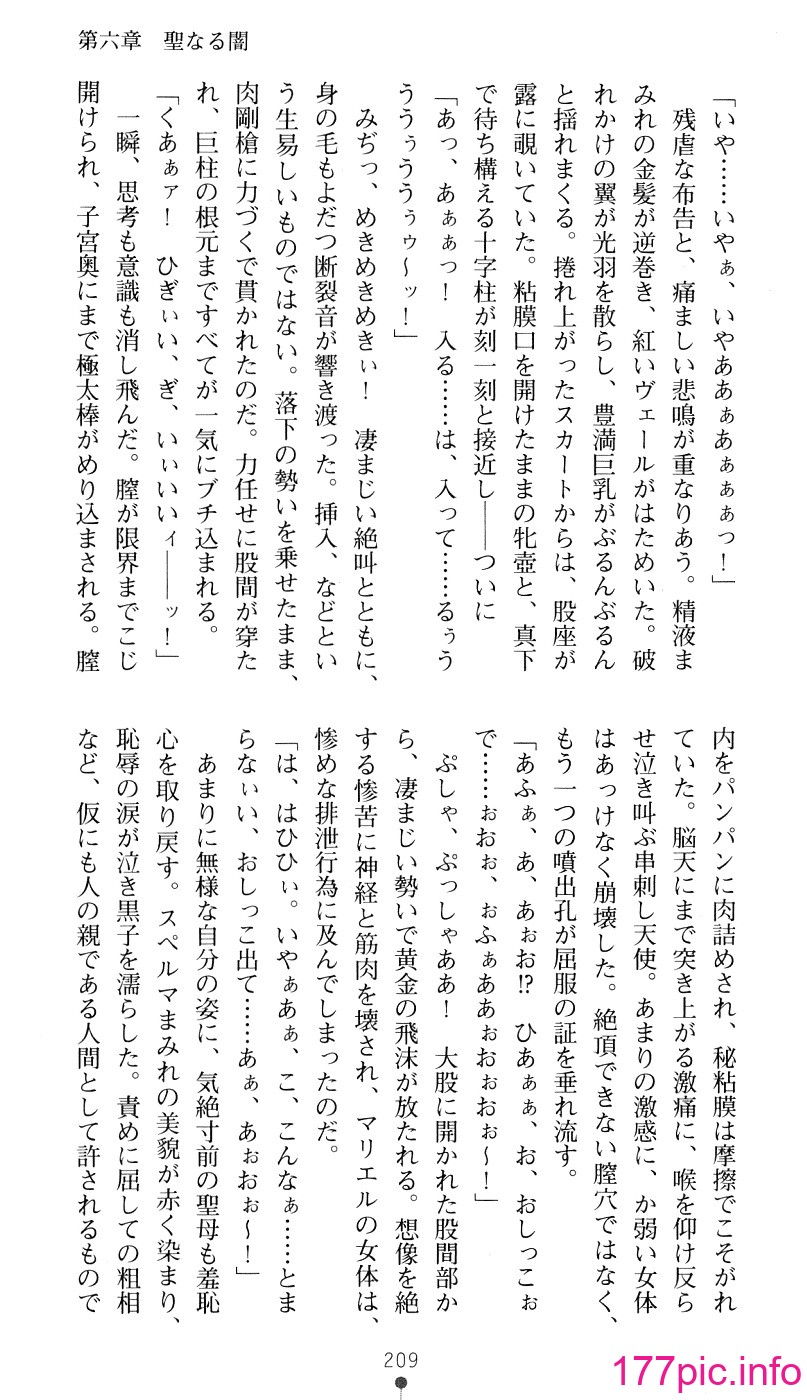 第六章　聖なる闇
「いや……いやぁ、いやああぁあぁぁぁっ！」
　残虐な布告と、痛ましい悲鳴が重なりあう。精液ま
みれの金髪が逆巻き、紅いヴェールがはためいた。破
れかけの翼が光羽を散らし、豊満巨乳がぶるんぶるん
と揺れまくる。捲れ上がったスカートからは、股座が
露に覗いていた。粘膜口を開けたままの牝壺と、真下
で待ち構える十字柱が刻一刻と接近し――ついに
「あっ、あぁぁっ！　入る……は、入って……るぅう
ううぅううぅゥ～ッ！」
　みぢっ、めきめきめきぃ！　凄まじい絶叫とともに、
身の毛もよだつ断裂音が響き渡った。挿入、などとい
う生易しいものではない。落下の勢いを乗せたまま、
肉剛槍に力づくで貫かれたのだ。力任せに股間が穿た
れ、巨柱の根元まですべてが一気にブチ込まれる。
「くあぁァ！　ひぎぃい、ぎ、いぃいいィ――ッ！」
　一瞬、思考も意識も消し飛んだ。膣が限界までこじ
開けられ、子宮奥にまで極太棒がめり込まされる。膣
内をパンパンに肉詰めされ、秘粘膜は摩擦でこそがれ
ていた。脳天にまで突き上がる激痛に、喉を仰け反ら
せ泣き叫ぶ串刺し天使。あまりの激感に、か弱い女体
はあっけなく崩壊した。絶頂できない膣穴ではなく、
もう一つの噴出孔が屈服の証を垂れ流す。
「あふぁ、あ、あぉお!?　ひあぁぁ、お、おしっこぉ
で……ぉおぉ、ぉふぁああぉおぉおぉ～！」
　ぷしゃ、ぷっしゃああ！　大股に開かれた股間部か
ら、凄まじい勢いで黄金の飛沫が放たれる。想像を絶
する惨苦に神経と筋肉を壊され、マリエルの女体は、
惨めな排泄行為に及んでしまったのだ。
「は、はひひぃ。いやぁあぁ、こ、こんなぁ……とま
らなぃい、おしっこ出て……あぁ、あぉおぉ～！」
　あまりに無様な自分の姿に、気絶寸前の聖母も羞恥
心を取り戻す。スペルマまみれの美貌が赤く染まり、
恥辱の涙が泣き黒子を濡らした。責めに屈しての粗相
など、仮にも人の親である人間として許されるもので
209
177pic.info